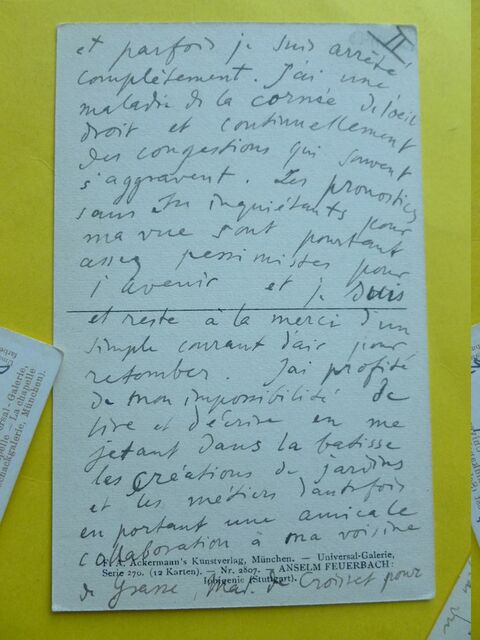 II
et parfois je suis arrêté
complètement. J'ai une
maladie de la cornée de l'oeil
droit et continuellement
des congestions qui souvent
s'aggravent. Les pronostics
sans être inquiétants pour
ma vue sont pourtant
assez pessimistes pour
l'avenir et je suis
et reste à la merci d'un
simple courant d'air pour
retomber. J'ai profité
de mon impossibilité de
lire et d'écrire en me
jetant dans la batisse
les créations de jardins
et les métiers d'autrefois
en portant une amicale
collaboration à ma voisine
F. A. Ackermann's Kunstverlag, München. — Universal-Galerie,
Serie 270. (12 Karten). — Nr. 2807. — ANSELM FEUERBACH:
Iphigenie (Stuttgart).
de Grasse, Mad. de Croisset pour
ersal-Galerie,
La chapelle
hackgalerie, München).